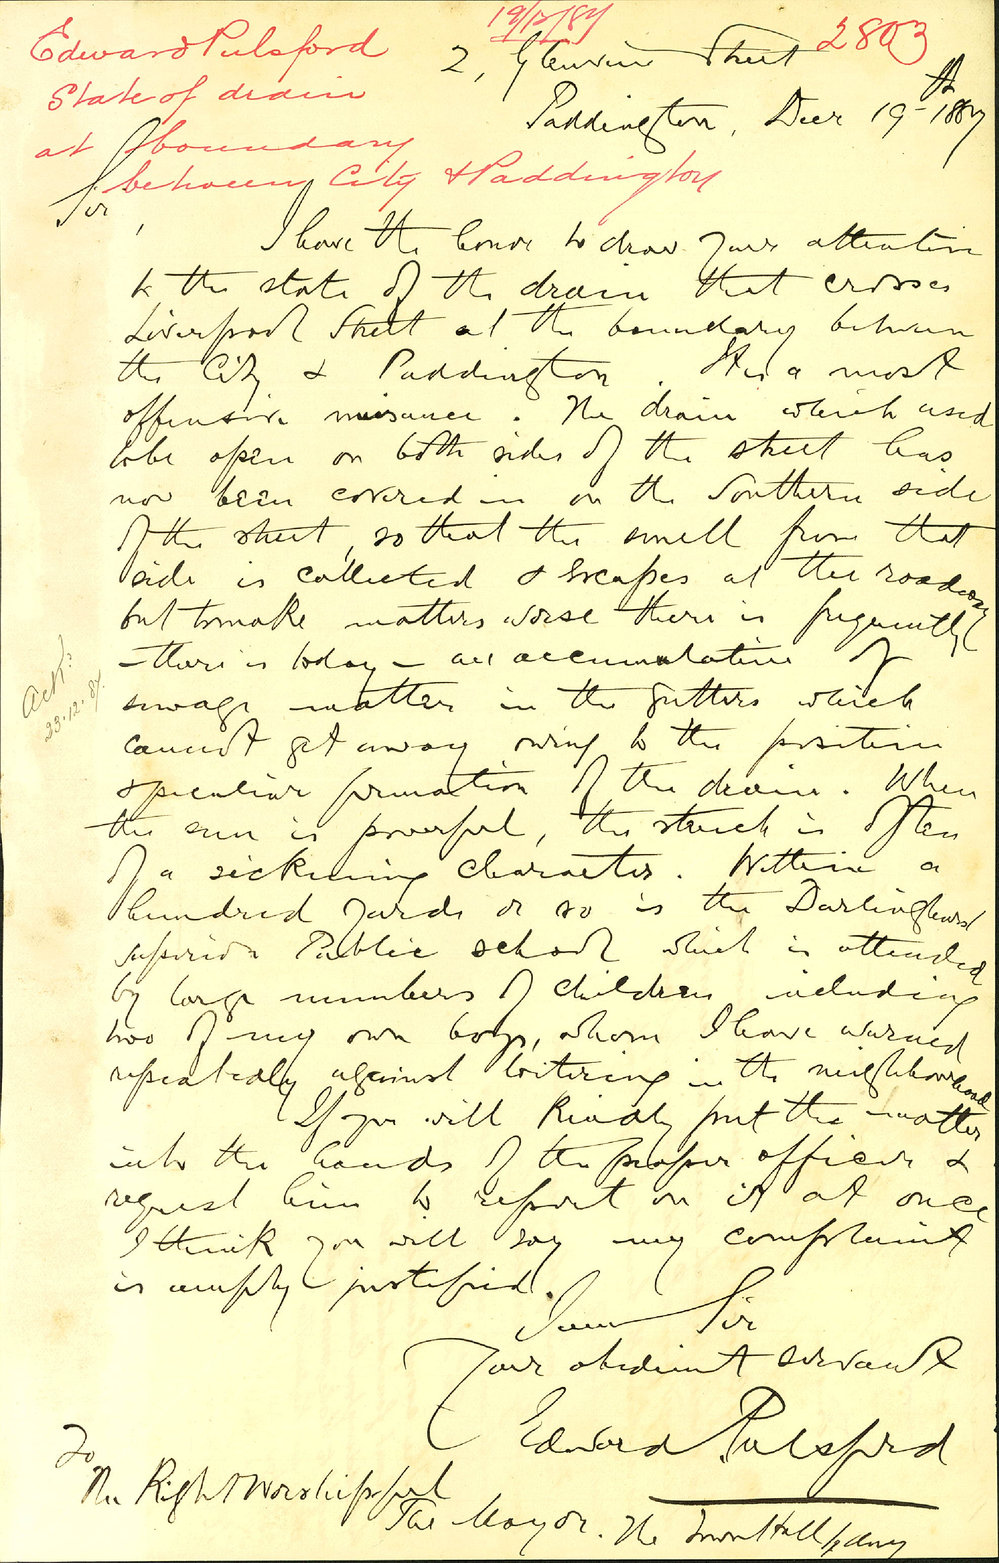 19/12/87
2803
Edward Pulsford
State of drain
at boundary
between City & Paddington
2, Glenview Street
Paddington, Decr 19th 1887
Sir,
I have the honor to draw your attention
to the state of the drain that crosses
Liverpool Street at the boundary between
the City & Paddington. It is a most
offensive nuisance. The drain which used
to be open on both sides of the street has
now been covered in on the Southern side
of the street, so that the smell from that
side is collected & escapes at the roadway
but to make matters worse there is frequently
- there is today - an accumulation of
sewage matter in the gutters which
cannot get away owing to the position
& peculiar formation of the drain. When
the sun is powerful, the stench is often
of a sickening character. Within a
hundred yards or so is the Darlinghurst
superior Public school which is attended
by large numbers of children including
two of my own boys, whom I have warned
repeatedly against loitering in the neighbourhood
If you will kindly put the matter
into the hands of the proper officer &
request him to report on it at once
I think you will say my complaint
is amply justified.
I am Sir
Your obedient servant
Edward Pulsford
To
The Right Worshipful
The Mayor. The Town Hall Sydney
Ack:
23.12.87.